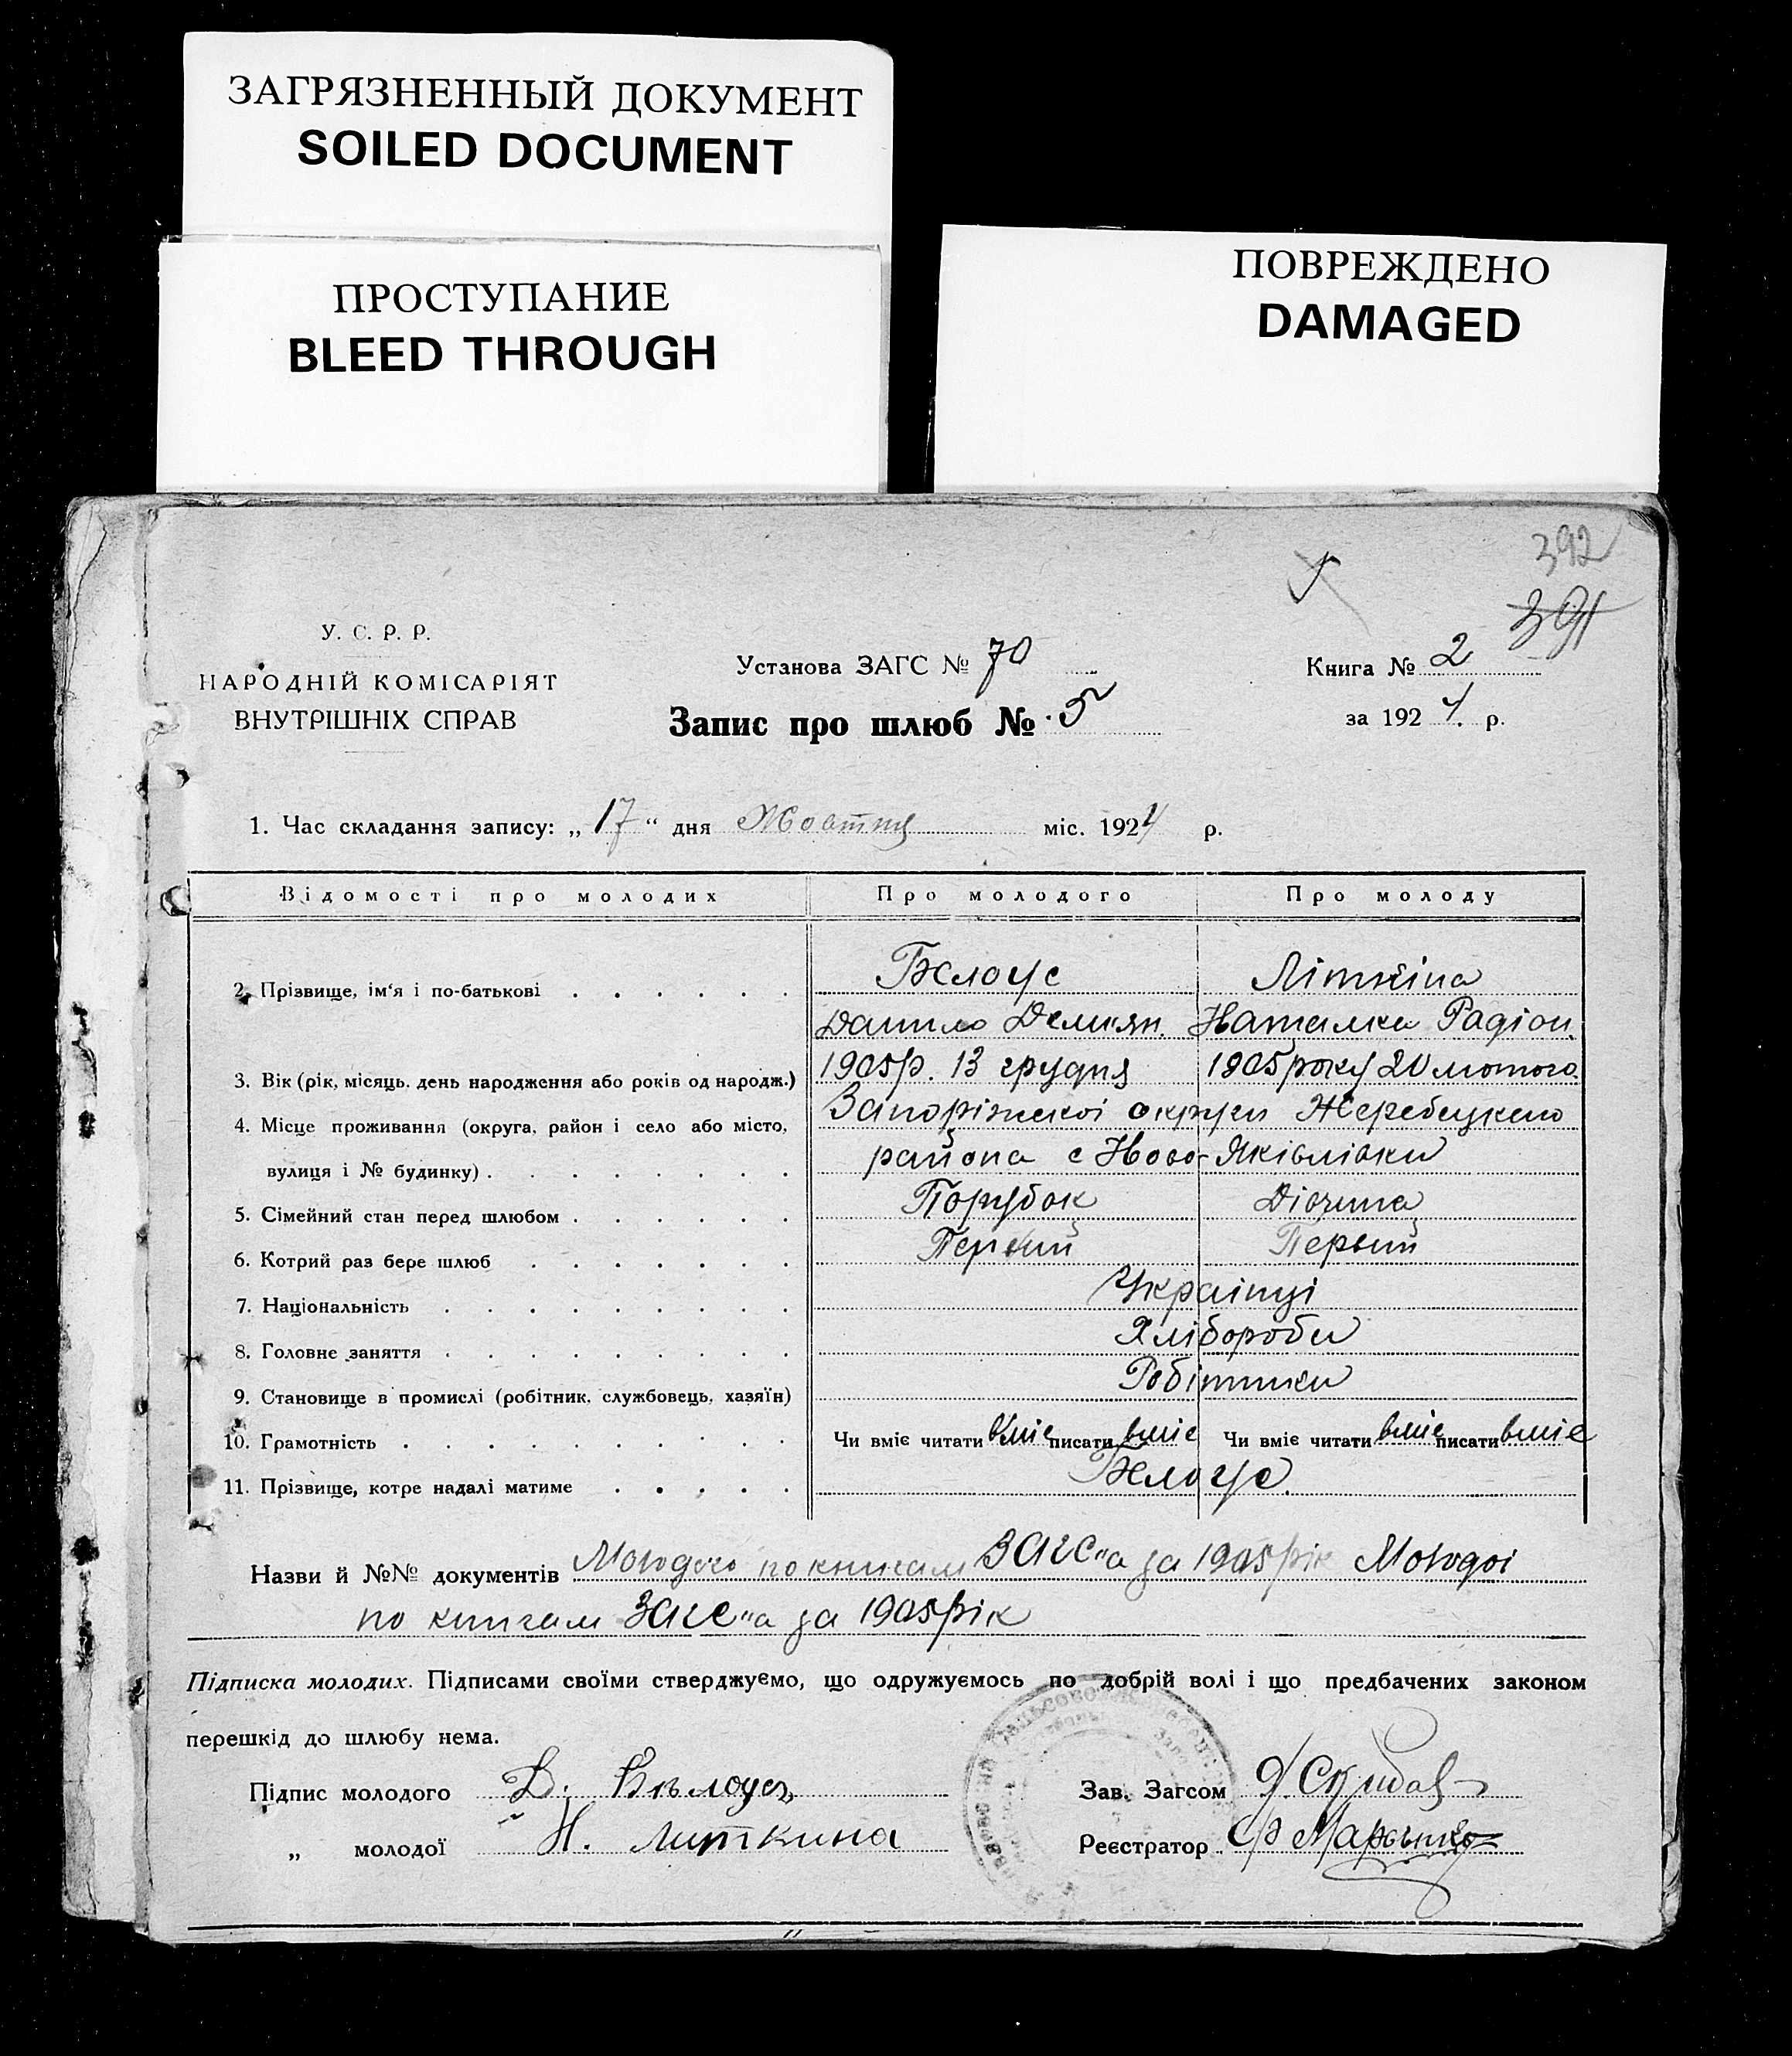 ЗАГРЯЗНЕННЫЙ ДОКУМЕНТ
SOILED DOCUMENT
ПРОСТУПАНИЕ
BLEED THROUGH
ПОВРЕЖДЕНО
DAMAGED
392
391
У. С. Р. Р.
НАРОДНІЙ КОМІСАРІЯТ
ВНУТРІШНІХ СПРАВ
Установа ЗАГС № 70
Запис про шлюб № 5
Книга № 2
за 1924 р.
1. Час складання запису: „ 17 “ дня Жовтня міс. 1924 р.
Відомості про молодих Про молодого Про молоду
2. Прізвище, ім'я і по-батькові Білоус Літкіна
Данило Демян. Наталка Радіон.
3. Вік (рік, місяць, день народження або років од народж.) 1905р. 13 грудня 1905 року 20 лютого
4. Місце проживання (округа, район і село або місто, Запоріжскоі округи Жеребецкого
вулиця і № будинку) района с Ново-Яківлівки
5. Сімейний стан перед шлюбом Парубок Дівчина
6. Котрий раз бере шлюб Первий Первий
7. Національність Украінці
8. Головне заняття Хлібороби
9. Становище в промислі (робітник, службовець, хазяїн) Робітники
10. Грамотність Чи вміє читати вміє писати вміє Чи вміє читати вміє писати вміє
11. Прізвище, котре надалі матиме Білоус.
Назви й №№ документів Молодого по книгам ЗАГС"а за 1905 рік Молодоі
по книгам ЗАГС"а за 1905 рік
Підписка молодих. Підписами своїми стверджуємо, що одружуємось по добрій волі і що предбачених законом
перешкід до шлюбу нема.
Підпис молодого Д. Бѣлоусъ
Зав. Загсом
„ молодої Н. Литкина
Реєстратор